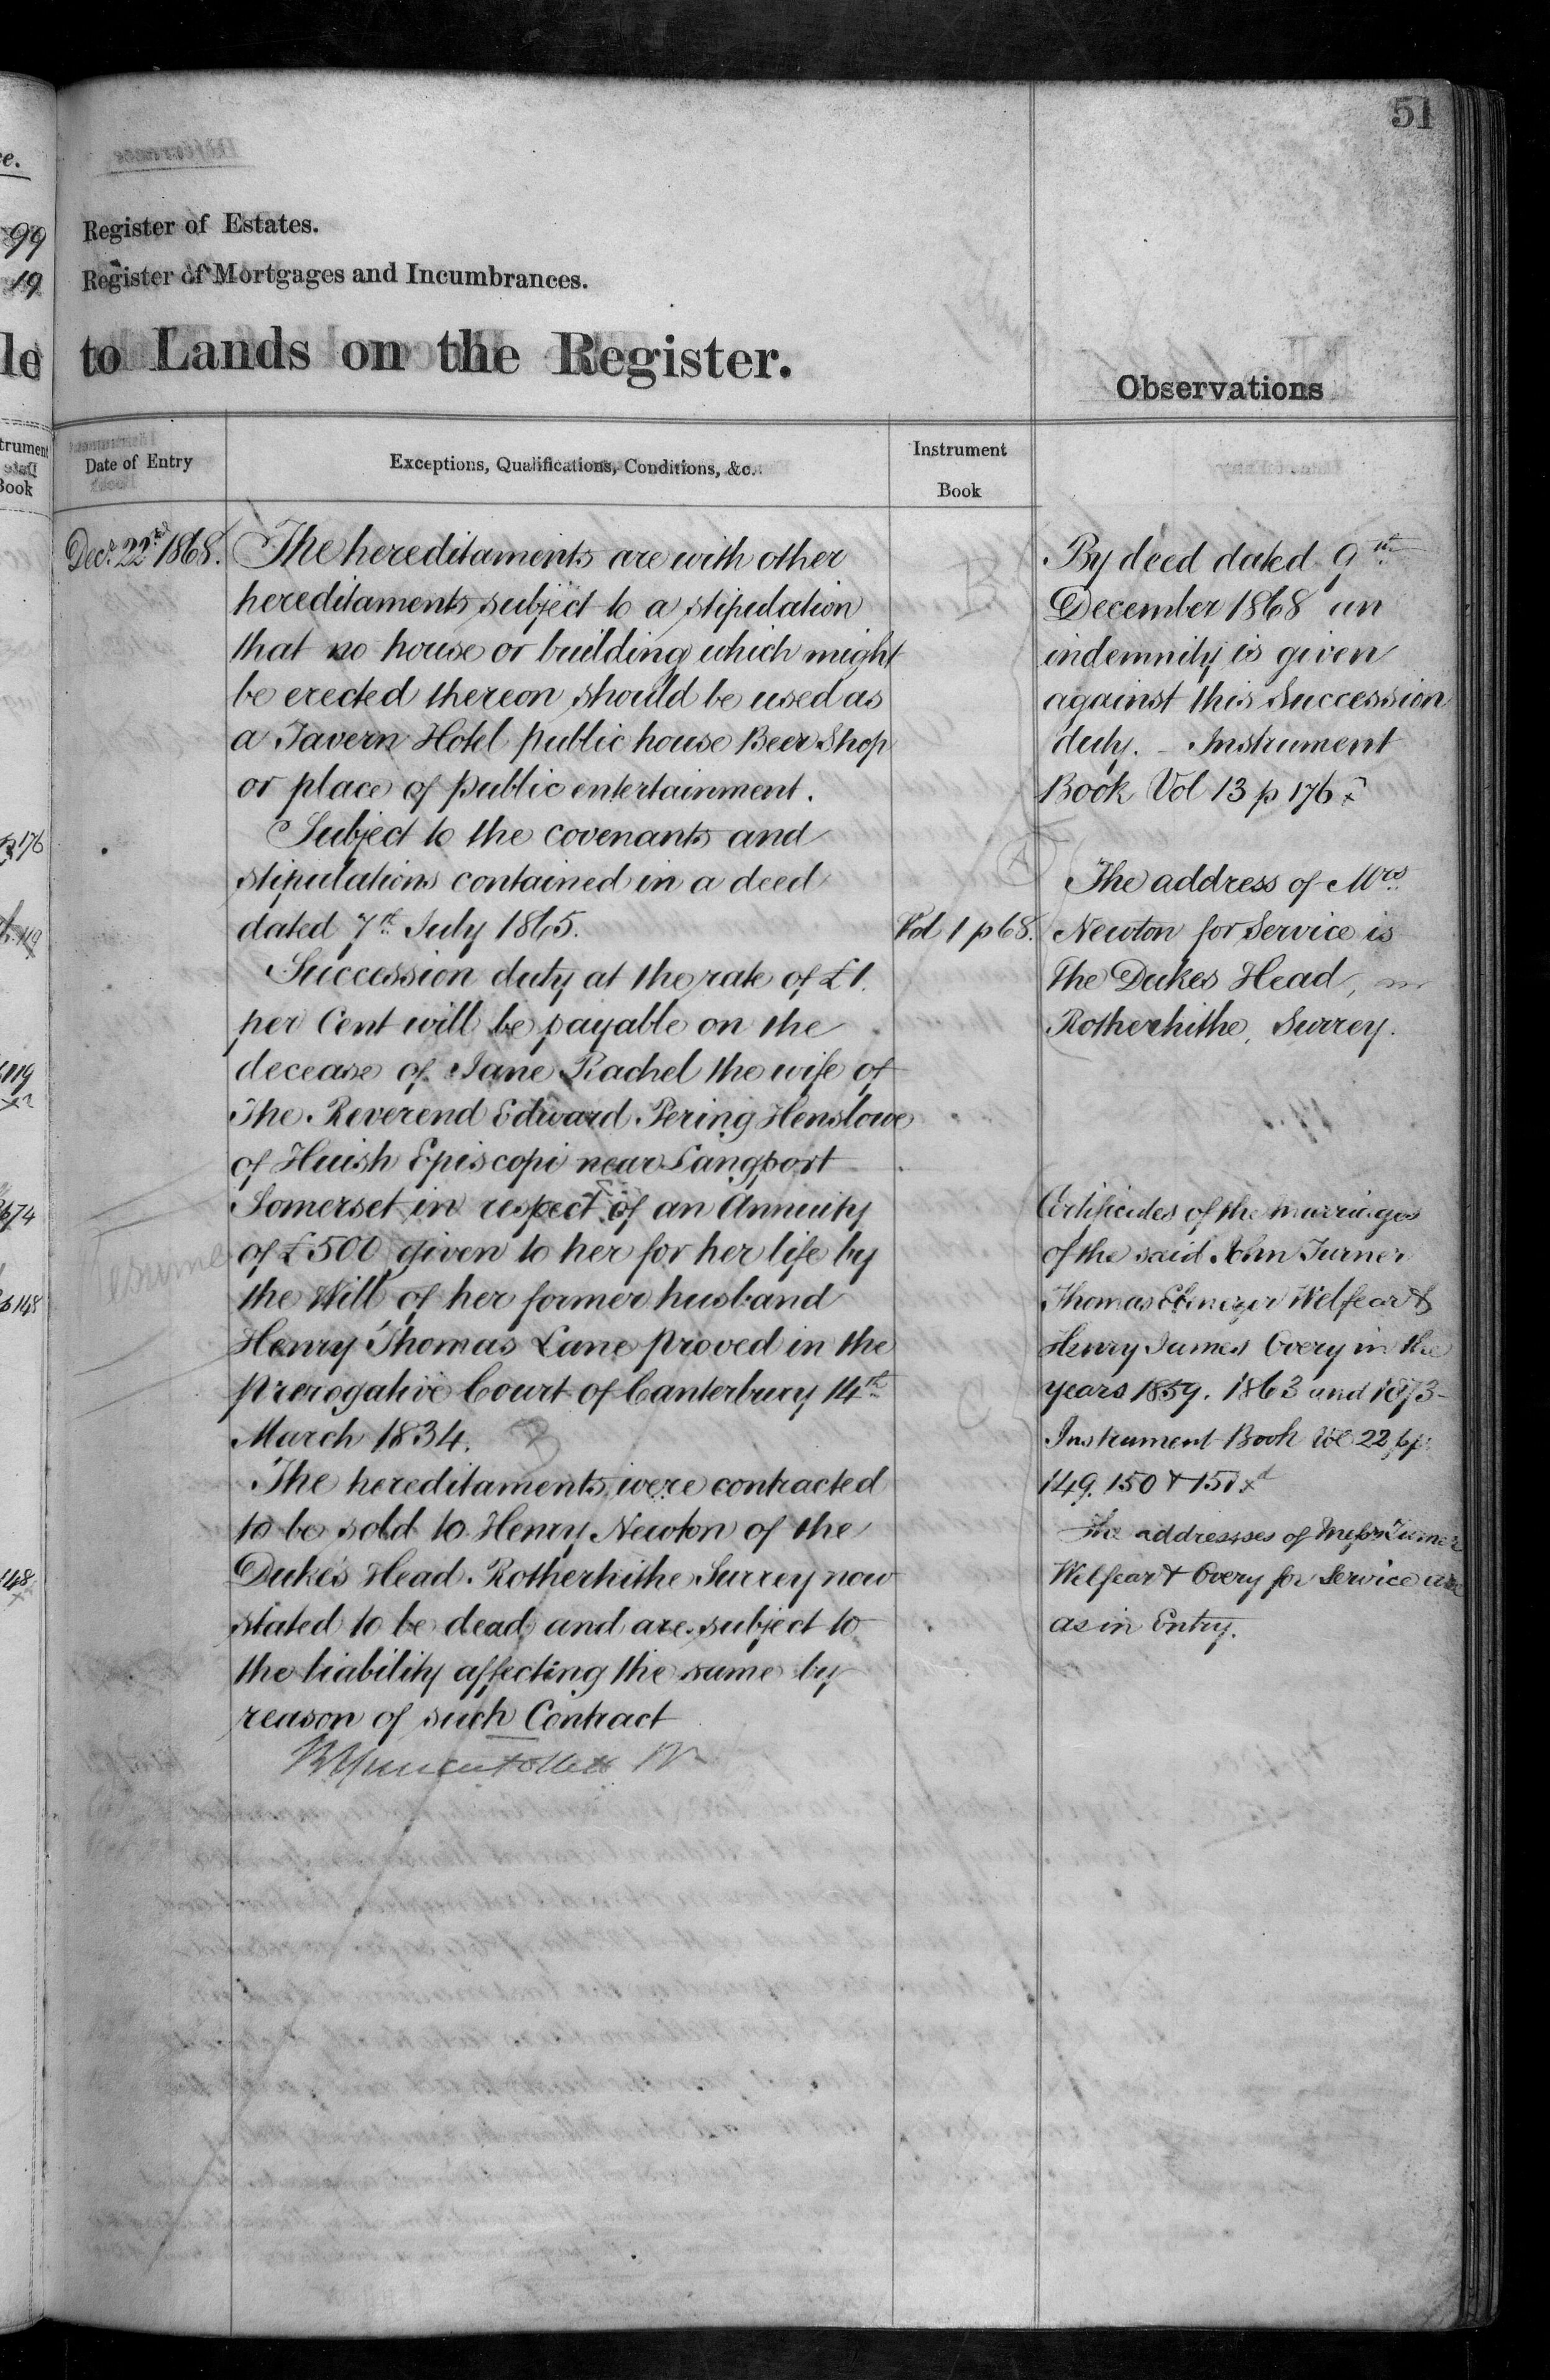 51
Register of Estates.
Register of Mortgages and Incumbrances.
to Lands on the Register.
Observations
Date of Entry
Exceptions, Qualifications, Conditions, &c.
Instrument
Book
Decr. 22nd 1868.
The hereditaments are with other
hereditaments subject to a stipulation
that no house or building which might
be erected thereon should be used as
a Tavern Hotel public house Beer Shop
or place of public entertainment.
Subject to the covenants and
stipulations contained in a deed
dated 7th July 1865.
Vol 1 p 68.
Succession duty at the rate of £1.
per Cent will be payable on the
decease of Jane Rachel the wife of
The Reverend Edward Pering Henslowe
of Huish Episcopi near Langport
Somerset in respect of an Annuity
of £500 given to her for her life by
the Will of her former husband
Henry Thomas Lane proved in the
prerogative Court of Canterbury 14th
March 1834.
The hereditaments were contracted
to be sold to Henry Newton of the
Duke's Head. Rotherhithe Surrey now
stated to be dead and are subject to
the liability affecting the same by
reason of such Contract
By deed dated 9th
December 1868 an
indemnity is given
against this Succession
duty. - Instrument
Book Vol 13 p 176 x
A
The address of Mrs.
Newton for Service is
The Dukes Head,
Rotherhithe, Surrey.
Certificates of the marriages
of the said John Turner
Thomas Ebenezer Welfear &
Henry James Overy in the
years 1859. 1863 and 1873
Instrument Book Vol 22 pp
149. 150 & 151 xd
The addressses of Messrs Turner
Welfear & Overy for Service are
as in Entry.